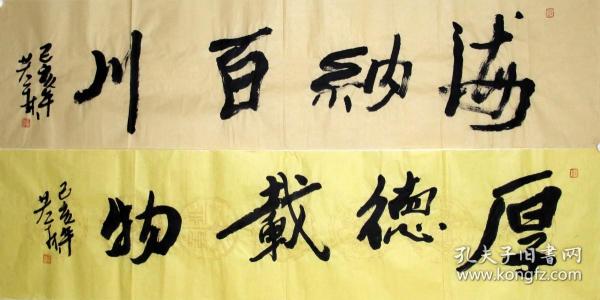 海纳百川
己亥年
厚德載物
己亥年
孔夫子旧书网
www.kongfz.com